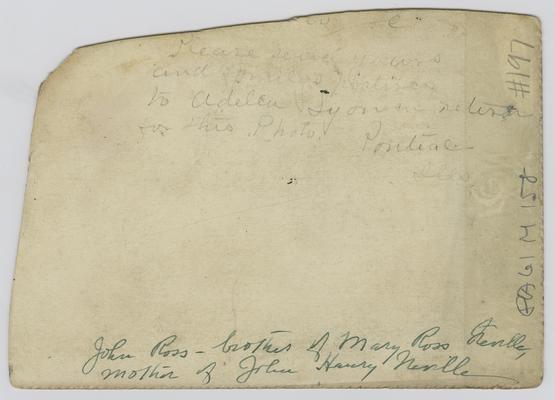 Please send yours
and
to Adelea Lyon in return
for this Photo. Pontiac
Ills
#197
PA61M158
John Ross - brother of Mary Ross Neville,
mother of John Henry Neville